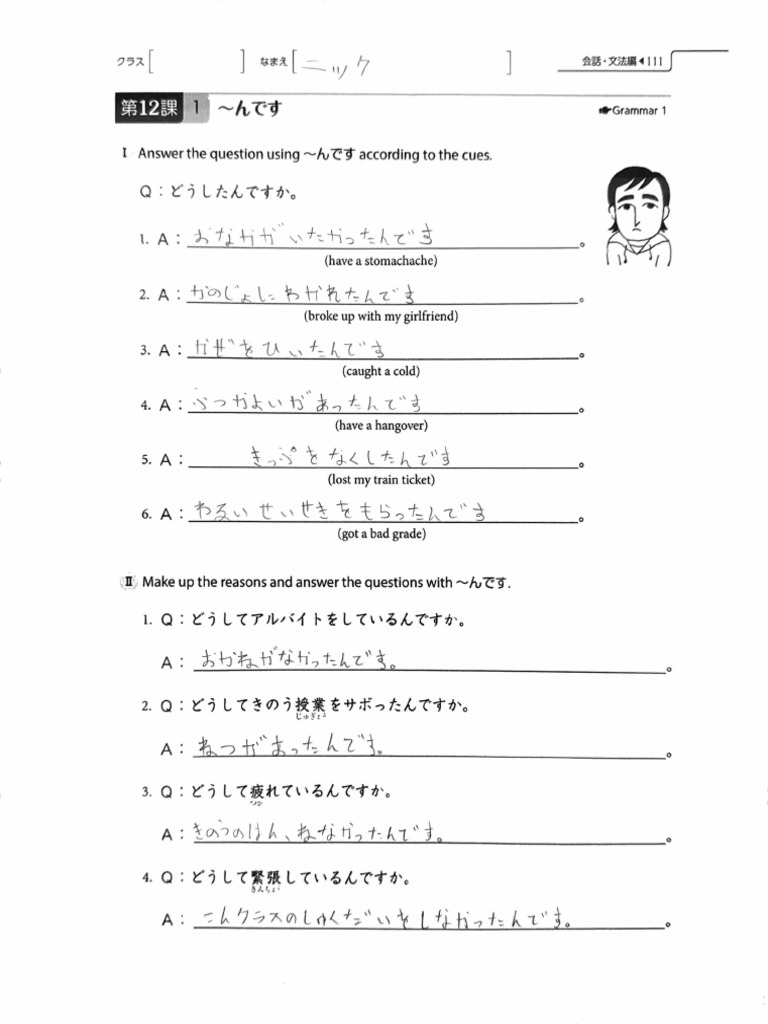 クラス [ ] なまえ [ ニック ] 会話・文法編◀111
第12課 1 〜んです ☛Grammar 1
I Answer the question using 〜んです according to the cues.
Q：どうしたんですか。
1. A：おなかがいたかったんです。
(have a stomachache)
2. A：かのじょにわかれたんです。
(broke up with my girlfriend)
3. A：かぜをひいたんです。
(caught a cold)
4. A：ふつかよいがあったんです。
(have a hangover)
5. A：きっぷをなくしたんです。
(lost my train ticket)
6. A：わるいせいせきをもらったんです。
(got a bad grade)
II Make up the reasons and answer the questions with 〜んです.
1. Q：どうしてアルバイトをしているんですか。
A：おかねがなかったんです。
2. Q：どうしてきのう授業をサボったんですか。
じゅぎょう
A：ねつがあったんです。
3. Q：どうして疲れているんですか。
つか
A：きのうのはん、ねなかったんです。
4. Q：どうして緊張しているんですか。
きんちょう
A：こんクラスのしゅくだいをしなかったんです。